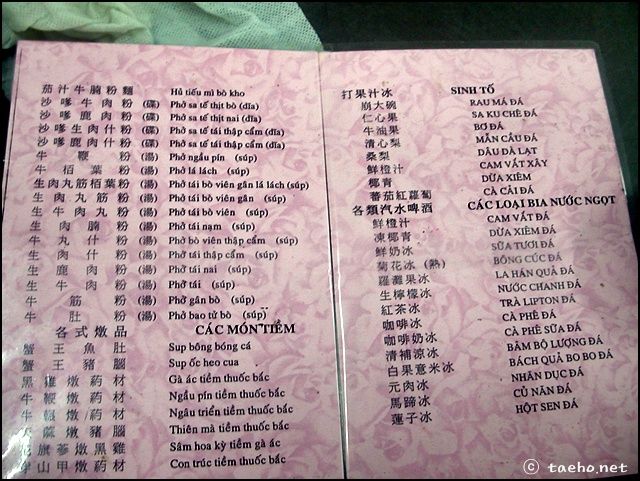 茄汁牛腩粉麵 Hủ tiếu mì bò kho
沙嗲牛肉粉 (碟) Phở sa tế thịt bò (dĩa)
沙嗲鹿肉粉 (碟) Phở sa tế thịt nai (dĩa)
沙嗲生肉什粉 (碟) Phở sa tế tái thập cẩm (dĩa)
沙嗲鹿肉什粉 (碟) Phở sa tế tái thập cẩm (dĩa)
牛鞭粉 (湯) Phở ngầu pín (súp)
牛栢葉粉 (湯) Phở lá lách (súp)
生肉丸筋栢葉粉 (湯) Phở tái bò viên gân lá lách (súp)
生肉丸筋粉 (湯) Phở tái bò viên gân (súp)
生牛肉丸粉 (湯) Phở tái bò viên (súp)
生肉腩粉 (湯) Phở tái nạm (súp)
牛丸什粉 (湯) Phở bò viên thập cẩm (súp)
生肉什粉 (湯) Phở tái thập cẩm (súp)
生鹿肉粉 (湯) Phở tái nai (súp)
生牛肉粉 (湯) Phở tái (súp)
牛筋粉 (湯) Phở gân bò (súp)
牛肚粉 (湯) Phở bao tử bò (súp)
各式燉品 CÁC MÓN TIỀM
蟹王魚肚 Sup bông bóng cá
蟹王豬腦 Sup óc heo cua
黑雞燉葯材 Gà ác tiềm thuốc bắc
牛鞭燉葯材 Ngầu pín tiềm thuốc bắc
燉葯材 Ngâu triển tiềm thuốc bắc
燉豬腦 Thiên mà tiềm thuốc bắc
旗蔘燉黑雞 Sâm hoa kỳ tiềm gà ác
山甲燉葯材 Con trúc tiềm thuốc bắc
打果汁冰 SINH TỐ
崩大碗 RAU MÁ ĐÁ
仁心果 SA KU CHÊ ĐÁ
牛油果 BƠ ĐÁ
清心梨 MẪN CẦU ĐÁ
桑梨 DÂU ĐÀ LẠT
鮮橙汁 CAM VẮT XÂY
椰青 DỪA XIÊM
蕃茄紅蘿蔔 CÀ CẢI ĐÁ
各類汽水啤酒 CÁC LOẠI BIA NƯỚC NGỌT
鮮橙汁 CAM VẮT ĐÁ
凍椰青 DỪA XIÊM ĐÁ
鮮奶冰 SỮA TƯƠI ĐÁ
菊花冰 (熱) BÔNG CÚC ĐÁ
羅漢果冰 LA HÁN QUẢ ĐÁ
生檸檬冰 NƯỚC CHANH ĐÁ
紅茶冰 TRÀ LIPTON ĐÁ
咖啡冰 CÀ PHÊ ĐÁ
咖啡奶冰 CÀ PHÊ SỮA ĐÁ
清補涼冰 BÂM BỘ LƯỢNG ĐÁ
白果意米冰 BÁCH QUẢ BO BO ĐÁ
元肉冰 NHÃN DỤC ĐÁ
馬蹄冰 CỦ NĂN ĐÁ
蓮子冰 HỘT SEN ĐÁ
© taeho.net